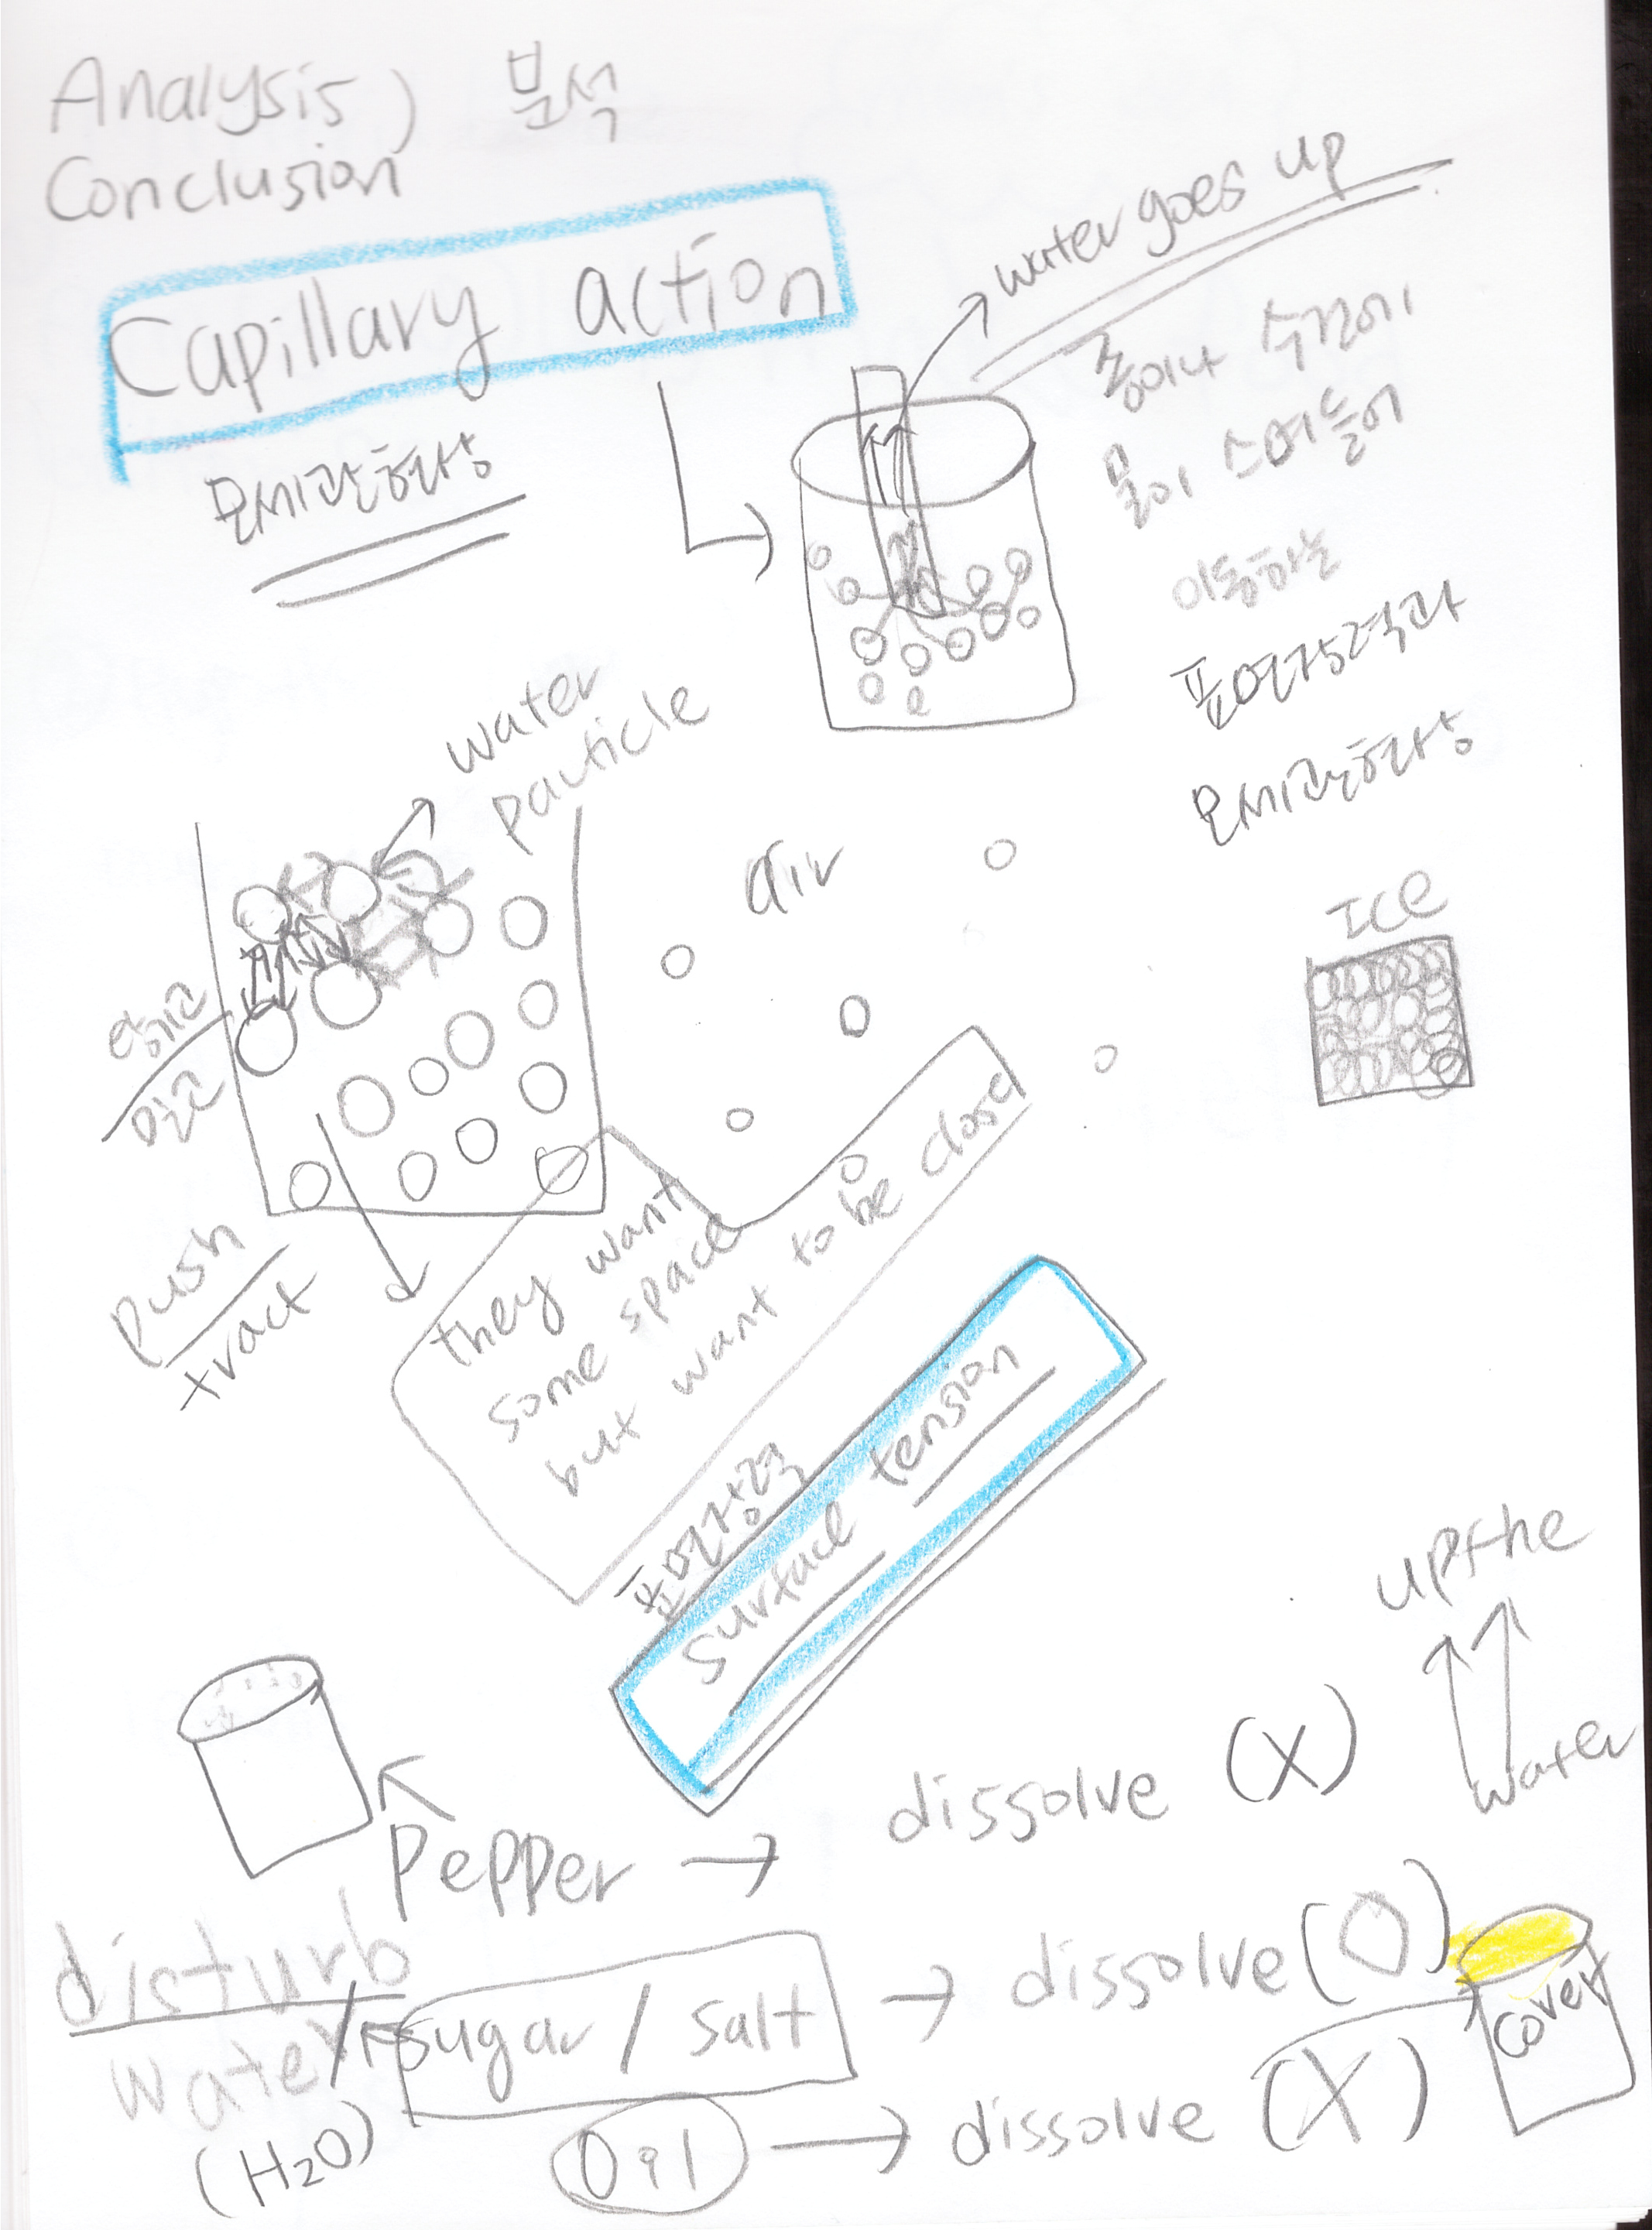 Analysis) 분석
Conclusion
Capillary action
모세관현상
water goes up
종이나 수건이
물이 스며들어
이동하는
표면장력과
모세관현상
water
particle
air
ICE
당기고
밀고
push
tract
they want
some space
but want to be close
표면장력
surface tension
up the
water
Pepper → dissolve (X)
disturb
water / sugar / salt → dissolve (O)
(H2O)
Oil → dissolve (X)
cover